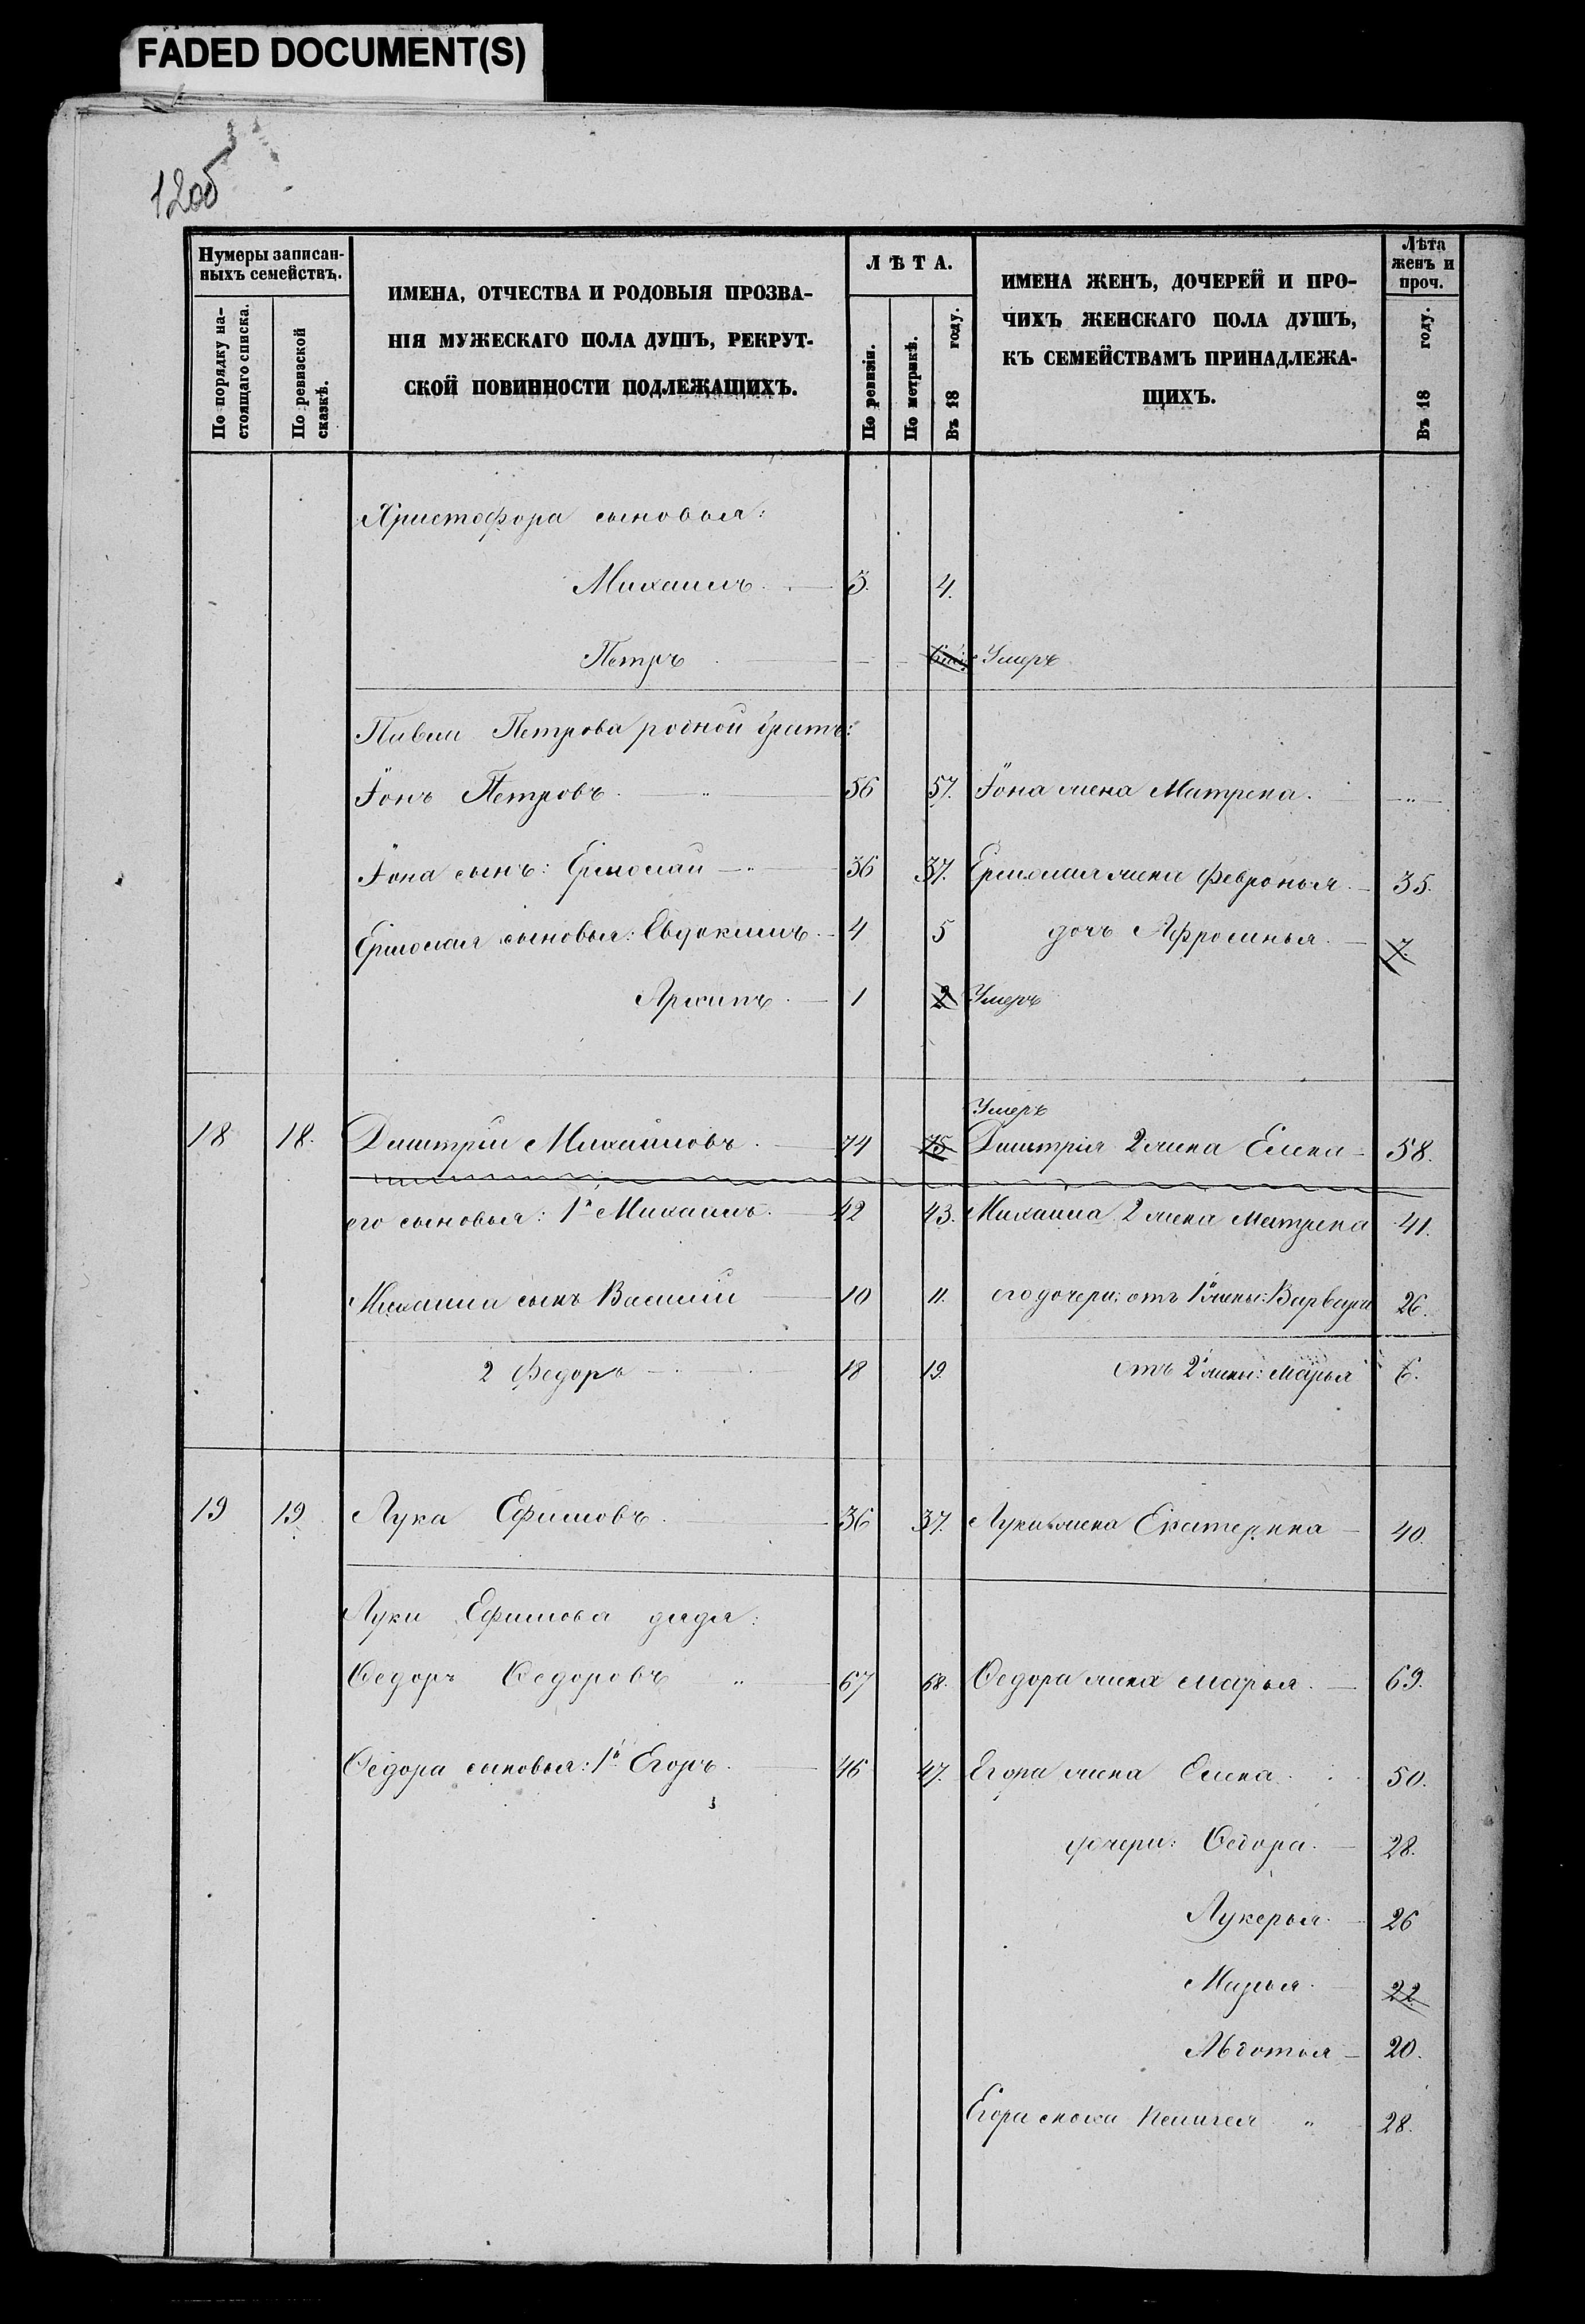 FADED DOCUMENT(S)
12об
Нумеры записан-
ныхъ семействъ.
По порядку на-
стоящаго списка.
По ревизской
сказкѣ.
ИМЕНА, ОТЧЕСТВА И РОДОВЫЯ ПРОЗВА-
НІЯ МУЖЕСКАГО ПОЛА ДУШЪ, РЕКРУТ-
СКОЙ ПОВИННОСТИ ПОДЛЕЖАЩИХЪ.
ЛѢТА.
По ревизіи.
По метрикѣ.
Въ 18 году.
ИМЕНА ЖЕНЪ, ДОЧЕРЕЙ И ПРО-
ЧИХЪ ЖЕНСКАГО ПОЛА ДУШЪ,
КЪ СЕМЕЙСТВАМЪ ПРИНАДЛЕЖА-
ЩИХЪ.
Лѣта
женъ и
проч.
Въ 18 году.
Христофора сыновья:
Михаилъ 3. 4.
Петръ Умеръ
Павла Петрова родной братъ:
Іонъ Петровъ 56 57. Іона жена Матрена.
Іона сынъ: Ермолай 36 37. Ермолая жена Февронья 35.
Ермолая сыновья: Евдокимъ 4 5 дочь Афросинья 7.
Архипъ 1 2 Умеръ
Умеръ
18 18. Дмитрій Михайловъ 74 75 Дмитрія 2 жена Елена 58.
его сыновья: 1й Михаилъ 42 43. Михаила 2 жена Матрена 41.
Михаила сынъ Василій 10 11. его дочери: отъ 1й жены: Варвара 26.
2 Федоръ 18 19. отъ 2й жены: Марья 6.
19 19 Лука Ефимовъ 36 37. Луки жена Екатерина 40.
Луки Ефимова дядя:
Ѳедоръ Ѳедоровъ 67 68. Ѳедора жена Марья 69.
Ѳедора сыновья: 1й Егоръ 46 47. Егора жена Елена 50.
дочери: Ѳедора 28.
Лукерья 26
Марья 22
Авдотья 20.
Егора сноха Пелагея 28.